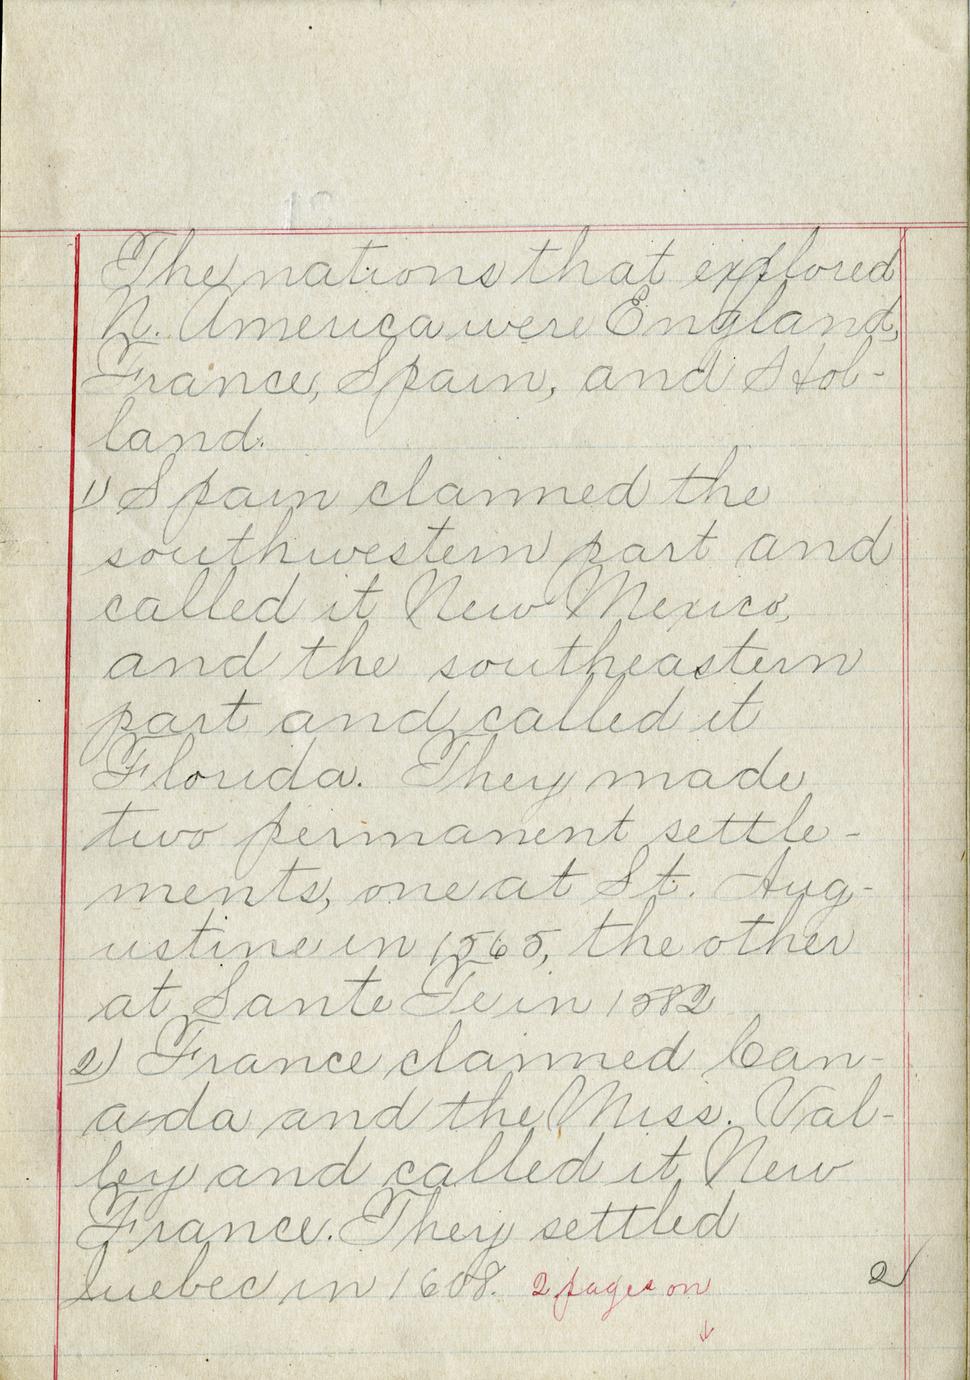 The nations that explored
N. America were England,
France, Spain, and Hol-
land.
1) Spain claimed the
southwestern part and
called it New Mexico,
and the southeastern
part and called it
Florida. They made
two permanent settle-
ments, one at St. Aug-
ustine in 1565, the other
at Sante Fe in 1582
2) France claimed Can-
a-da and the Miss. Val-
ley and called it New
France. They settled
Quebec in 1608. 2 pages on
2